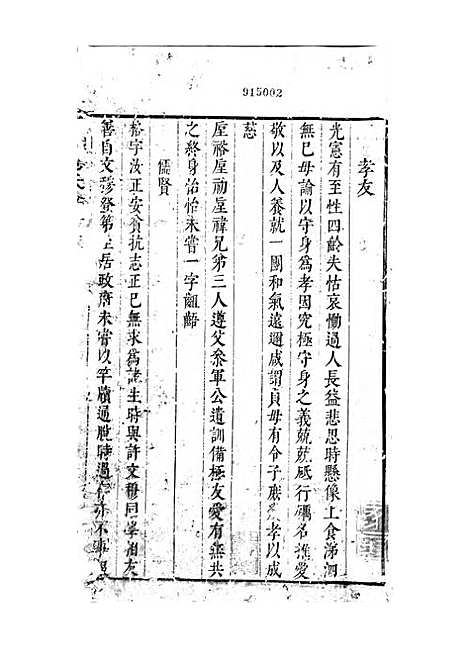 915002
孝友
光憲有至性四齡失怙哀慟過人長益悲思時懸像上食涕泗
無已母論以守身為孝因究極守身之義兢兢砥行礪名推愛
敬以及人養就一團和氣遠邇咸謂貞母有令子發孝以成
慈
垕裕垕礽垕禕兄弟三人遵父參軍公遺訓備極友愛有無共
之終身洽怡未嘗一字齟齬
儒賢
裕宇汝正安貧抗志正已無求為諸生時與許文穆同學相友
善自文穆登第居政府未嘗以竿牘通脫時過亦不事